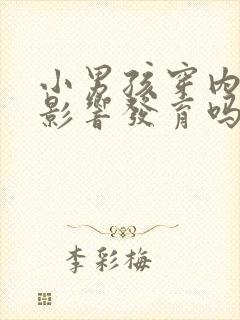 小男孩穿内
影響發育吗
李彩梅